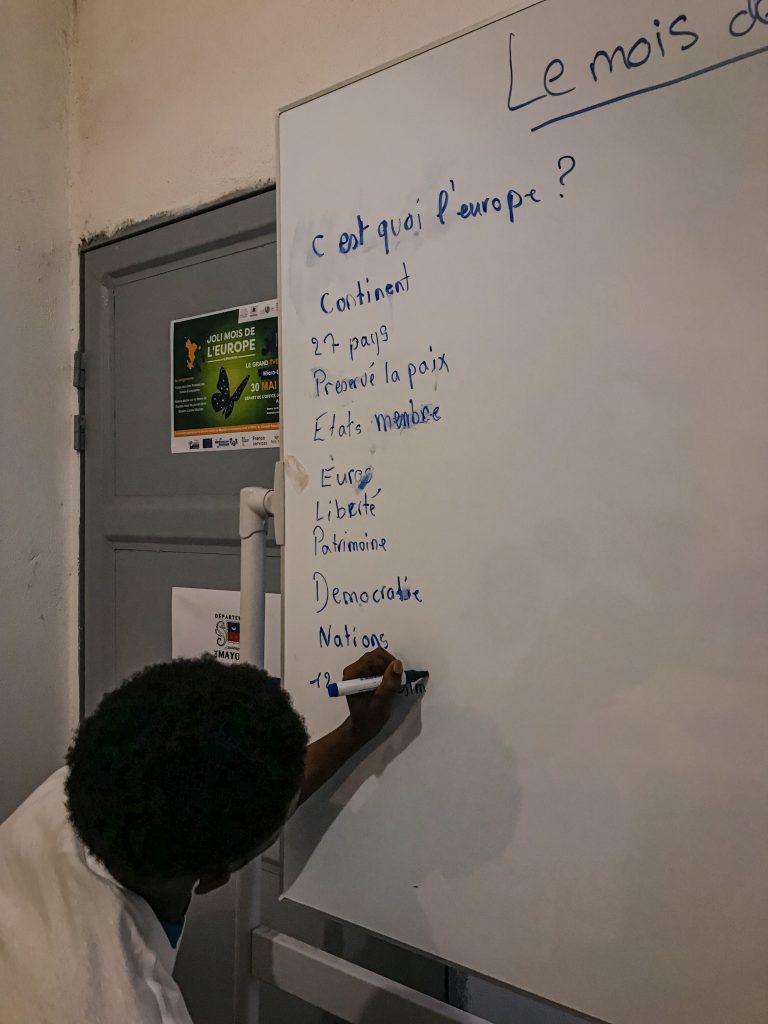 Le mois de
c est quoi l'europe ?
Continent
27 pays
Preservé la paix
Etats membre
Euros
Liberté
Patrimoine
Democratie
Nations
12
JOLI MOIS DE
L'EUROPE
LE GRAND
30 MAI
France
services
DÉPARTE
MAYO